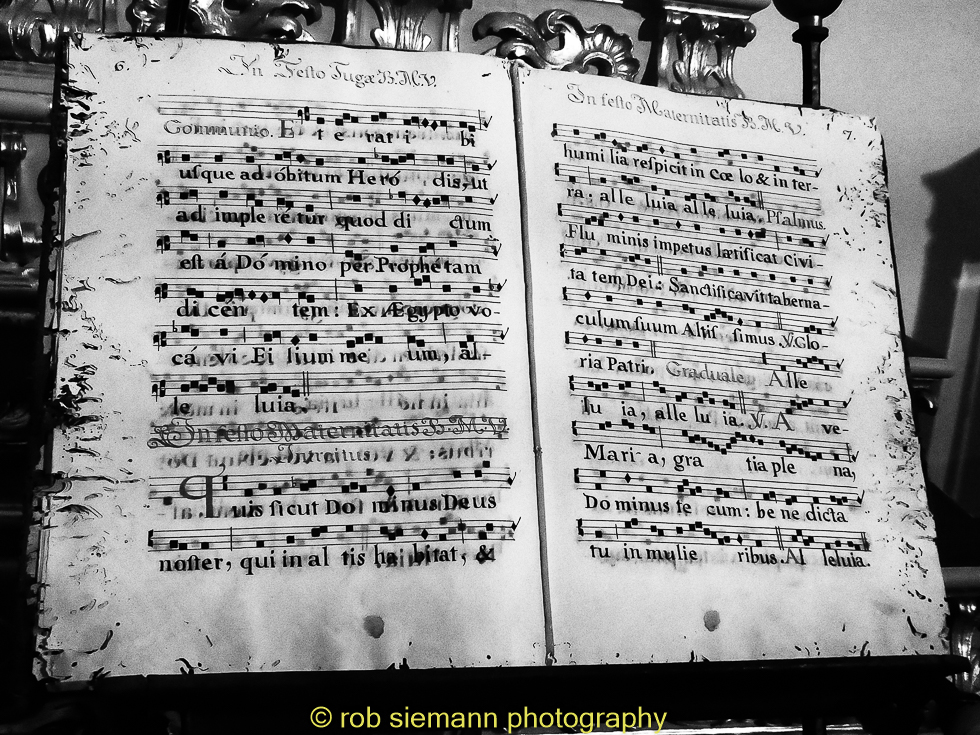 6.
In Festo Fugæ B.M.V.
Communio. E t e rat i bi
usque ad óbitum Heró dis, ut
ad imple re tur quod di ctum
est á Dó mino per Prophé tam
di cén tem: Ex Ægypto vo-
cá vi Fi lium me um, al-
le luia.
In festo Maternitatis B.M.V.
Introitus
Quis sicut Do minus Deus
noster, qui in al tis ha bitat, &
In festo Maternitatis B. M. V. 7.
humi lia respicit in cœ lo & in ter-
ra: alle luia al le luia. Psalmus.
Flu minis impetus lætificat Civi-
ta tem Dei: Sanctificavit taberna-
culum suum Altis simus. V. Glo-
ria Patri. Graduale. Alle
lu ia, alle lu ia. V. A ve-
Mari a, gra tia ple na,
Do minus te cum: be ne dicta
tu in mulie ribus. Al leluia.
© rob siemann photography